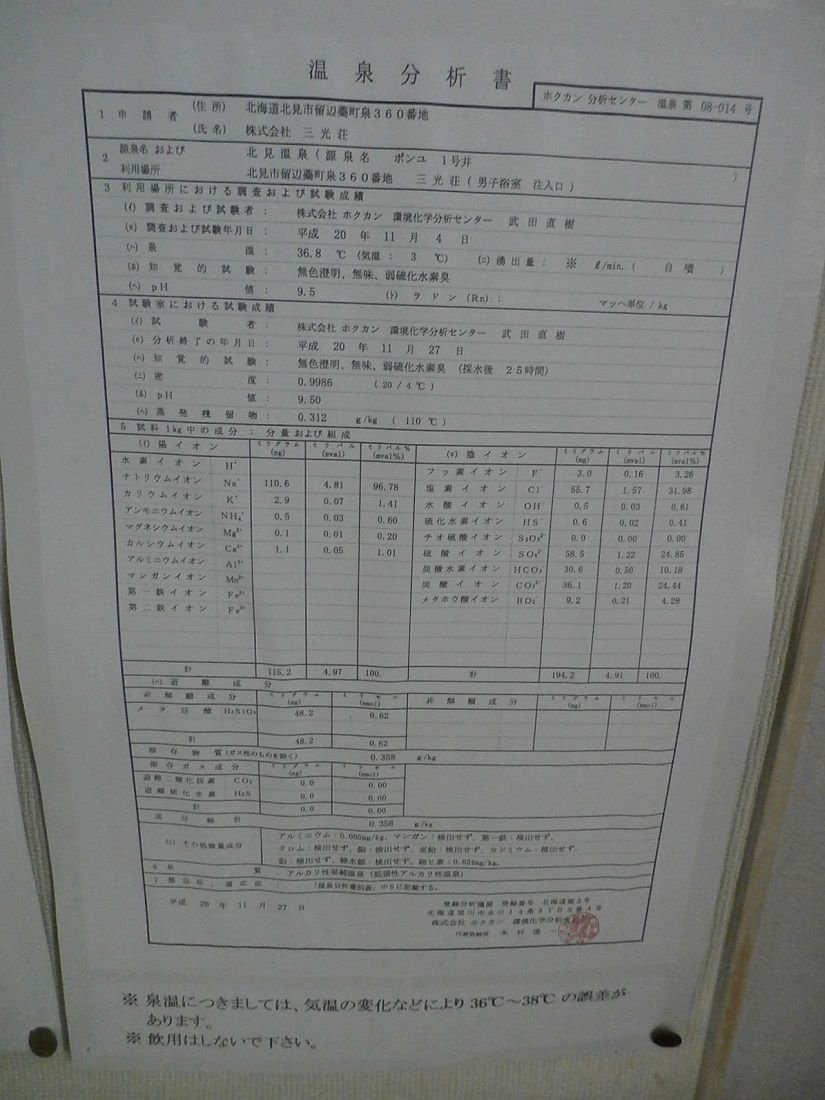 温泉分析書
ホクカン 分析センター 温泉 第 08-014 号
1 申請者 (住所) 北海道北見市留辺蘂町泉360番地
(氏名) 株式会社 三光荘
2 源泉名 および 利用場所 北見温泉(源泉名 ポンユ 1号井 )
北見市留辺蘂町泉360番地 三光荘(男子浴室 注入口)
3 利用場所における調査および試験成績
(イ) 調査および試験者: 株式会社 ホクカン 環境化学分析センター 武田直樹
(ロ) 調査および試験年月日: 平成 20 年 11 月 4 日
(ハ) 泉温: 36.8 ℃ (気温: 3 ℃) (ニ) 湧出量: ※ ℓ/min.( 自噴 )
(ホ) 知覚的試験: 無色澄明、無味、弱硫化水素臭
(ヘ) pH値: 9.5 (ト) ラドン (Rn): マッヘ単位/kg
4 試験室における試験成績
(イ) 試験者: 株式会社 ホクカン 環境化学分析センター 武田直樹
(ロ) 分析終了の年月日: 平成 20 年 11 月 27 日
(ハ) 知覚的試験: 無色澄明、無味、弱硫化水素臭 (採水後 25時間)
(ニ) 密度: 0.9986 (20/4℃)
(ホ) pH値: 9.50
(ヘ) 蒸発残留物: 0.312 g/kg (110℃)
5 試料1kg中の成分: 分量および組成
(イ) 陽イオン ミリグラム (mg) ミリバル (mval) ミリバル% (mval%) (ロ) 陰イオン ミリグラム (mg) ミリバル (mval) ミリバル% (mval%)
水素イオン H⁺ フッ素イオン F⁻ 3.0 0.16 3.26
ナトリウムイオン Na⁺ 110.6 4.81 96.78 塩素イオン Cl⁻ 55.7 1.57 31.98
カリウムイオン K⁺ 2.9 0.07 1.41 水酸イオン OH⁻ 0.5 0.03 0.61
アンモニウムイオン NH₄⁺ 0.5 0.03 0.60 硫化水素イオン HS⁻ 0.6 0.02 0.41
マグネシウムイオン Mg²⁺ 0.1 0.01 0.20 チオ硫酸イオン S₂O₃²⁻ 0.0 0.00 0.00
カルシウムイオン Ca²⁺ 1.1 0.05 1.01 硫酸イオン SO₄²⁻ 58.5 1.22 24.85
アルミニウムイオン Al³⁺ 炭酸水素イオン HCO₃⁻ 30.6 0.50 10.18
マンガンイオン Mn²⁺ 炭酸イオン CO₃²⁻ 36.1 1.20 24.44
第一鉄イオン Fe²⁺ メタホウ酸イオン BO₂⁻ 9.2 0.21 4.28
第二鉄イオン Fe³⁺
計 115.2 4.97 100. 計 194.2 4.91 100.
(ハ) 遊離成分
非解離成分 ミリグラム (mg) ミリモル (mmol) 非解離成分 ミリグラム (mg) ミリモル (mmol)
メタ珪酸 H₂SiO₃ 48.2 0.62
計 48.2 0.62
溶存物質(ガス性のものを除く) 0.358 g/kg
溶存ガス成分 ミリグラム (mg) ミリモル (mmol)
遊離二酸化炭素 CO₂ 0.0 0.00
遊離硫化水素 H₂S 0.0 0.00
計 0.0 0.00
成分総計 0.358 g/kg
(ニ) その他微量成分 アルミニウム:0.005mg/kg、マンガン:検出せず、第一鉄:検出せず、
クロム:検出せず、銅:検出せず、亜鉛:検出せず、カドミウム:検出せず、
鉛:検出せず、総水銀:検出せず、総ヒ素:0.024mg/kg、
6 泉質: アルカリ性単純温泉(低張性アルカリ性温泉)
7 禁忌症、適応症: 「温泉分析書別表」中6に記載する。
平成 20 年 11 月 27 日
登録分析機関 登録番号 北海道第3号
北海道旭川市永山14条3丁目3番4号
株式会社 ホクカン 環境化学分析
代表取締役 木村
※ 泉温につきましては、気温の変化などにより36℃〜38℃の誤差が
あります。
※ 飲用はしないで下さい。